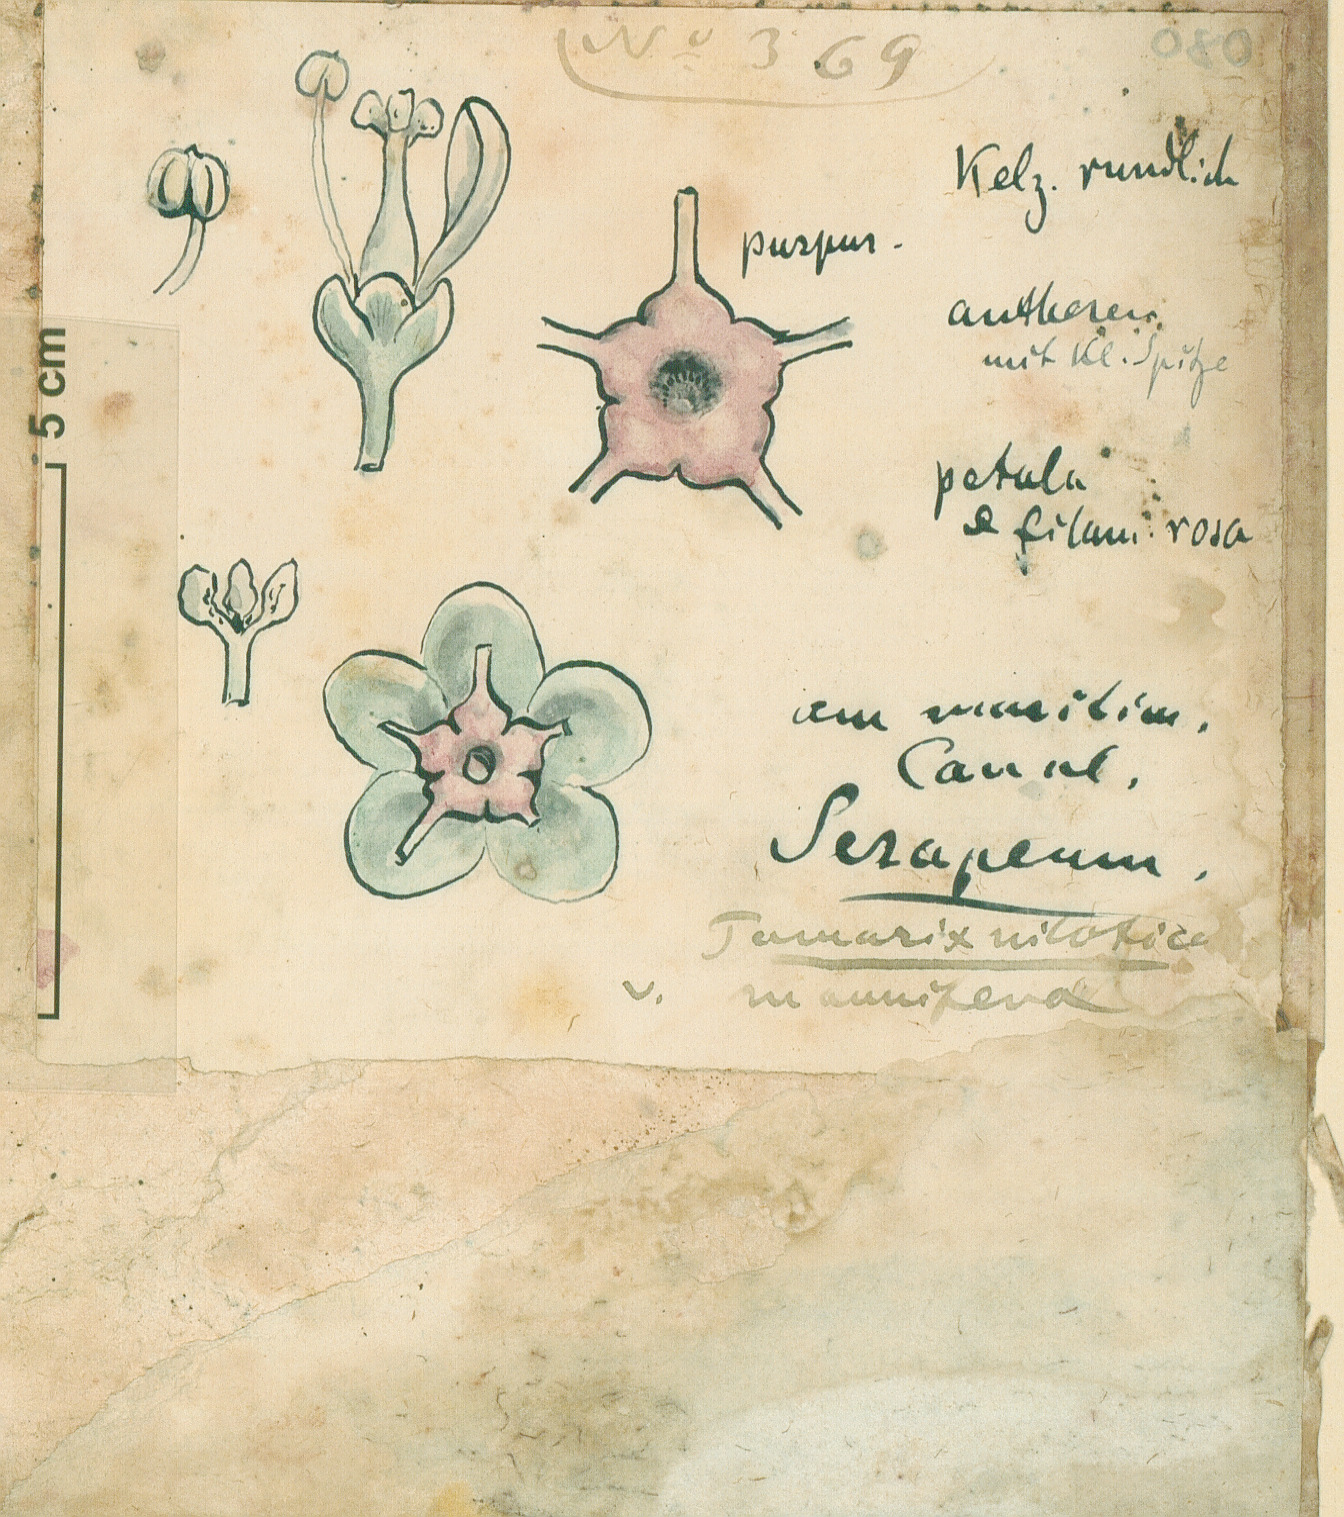 No 369
080
Kelz. rundlich
purpur.
antheren
mit kl. Spitze
5 cm
petala
& filam. rosa
am maritim.
Canal.
Serapeum.
Tamarix nilotica
v. mannifera